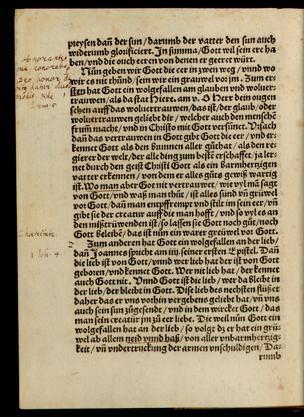 preysen dañ der sun / darumb der vatter den sun auch
widerumb glorificiert. In summa / Gott wil sein eer ha
ben / vnd die ouch eeren von denen er geert würt.
Nun geben wir Gott die eer in zwen weg / vnnd wo
wir es nit thünd / sein wir ein grauwel vor jm. Zum er-
sten hat Gott ein wolgefallen am glouben vnd woluer-
trauwen / als da stat Hiere. am v. O Herr dein ougen
sehen auff das woluertrauwen / das ist / der glaub / oder
woluertrauwen geliebt dir / welcher auch den menschē
frum macht / vnd in Christo mit Gott versünt. Vrsach
dan das vertrauwen in Gott gibt Gott die eer / vnd er-
kennet Gott als den brunnen aller güthat / als den re-
gierer der welt / der alle ding zum besten erschaffet / ja ler-
net durch den geist Christi Gott als ein barmhertzigen
vatter erkennen / von dem er alles güts gewiß wartig
ist. Wo man aber Got nit vertrauwet / wie vyl man sagt
von Gott / vnd waß man thüt / ist alles sünd vñ grüwel
vor Gott / dañ man entpfrempt vnd stilt im sein eer / vñ
gibt sie der creatur auff die man hofft / vnd so vyl es an
den mißtrüwenden ist / so lassen sie Gott noch güt / noch
Gott beleiben / das ist nun ein warer greüwel vor Gott.
Zum anderen hat Gott ein wolgefallen an der lieb /
dañ Joannes spricht am iiij. seiner ersten Epistel. Dañ
die lieb ist von Gott / vnnd wer lieb hat der ist von Gott
geboren / vnd kennet Gott. Wer nit lieb hat / der kennet
auch Gott nit. Vnnd Gott ist die lieb / wer da bleibt in
der lieb / der bleibt in Gott. Dise lieb des nechsten flüßet
daher das er vns vorhin vergebens geliebt hat / vñ vns
auch sein sun zügesende / vnd in dem wircket Gott / das
man sein creatur jm zü eer liebe. Die weil nün Gott ein
wolgefallen hat an der lieb / so volgt dz er hat ein grü-
wel ab allem neid vnnd haß / von aller vnbarmhertzig-
keit / vñ vndertruckung der armen vnschuldigen / Da-
rumb
1. Joh. 4